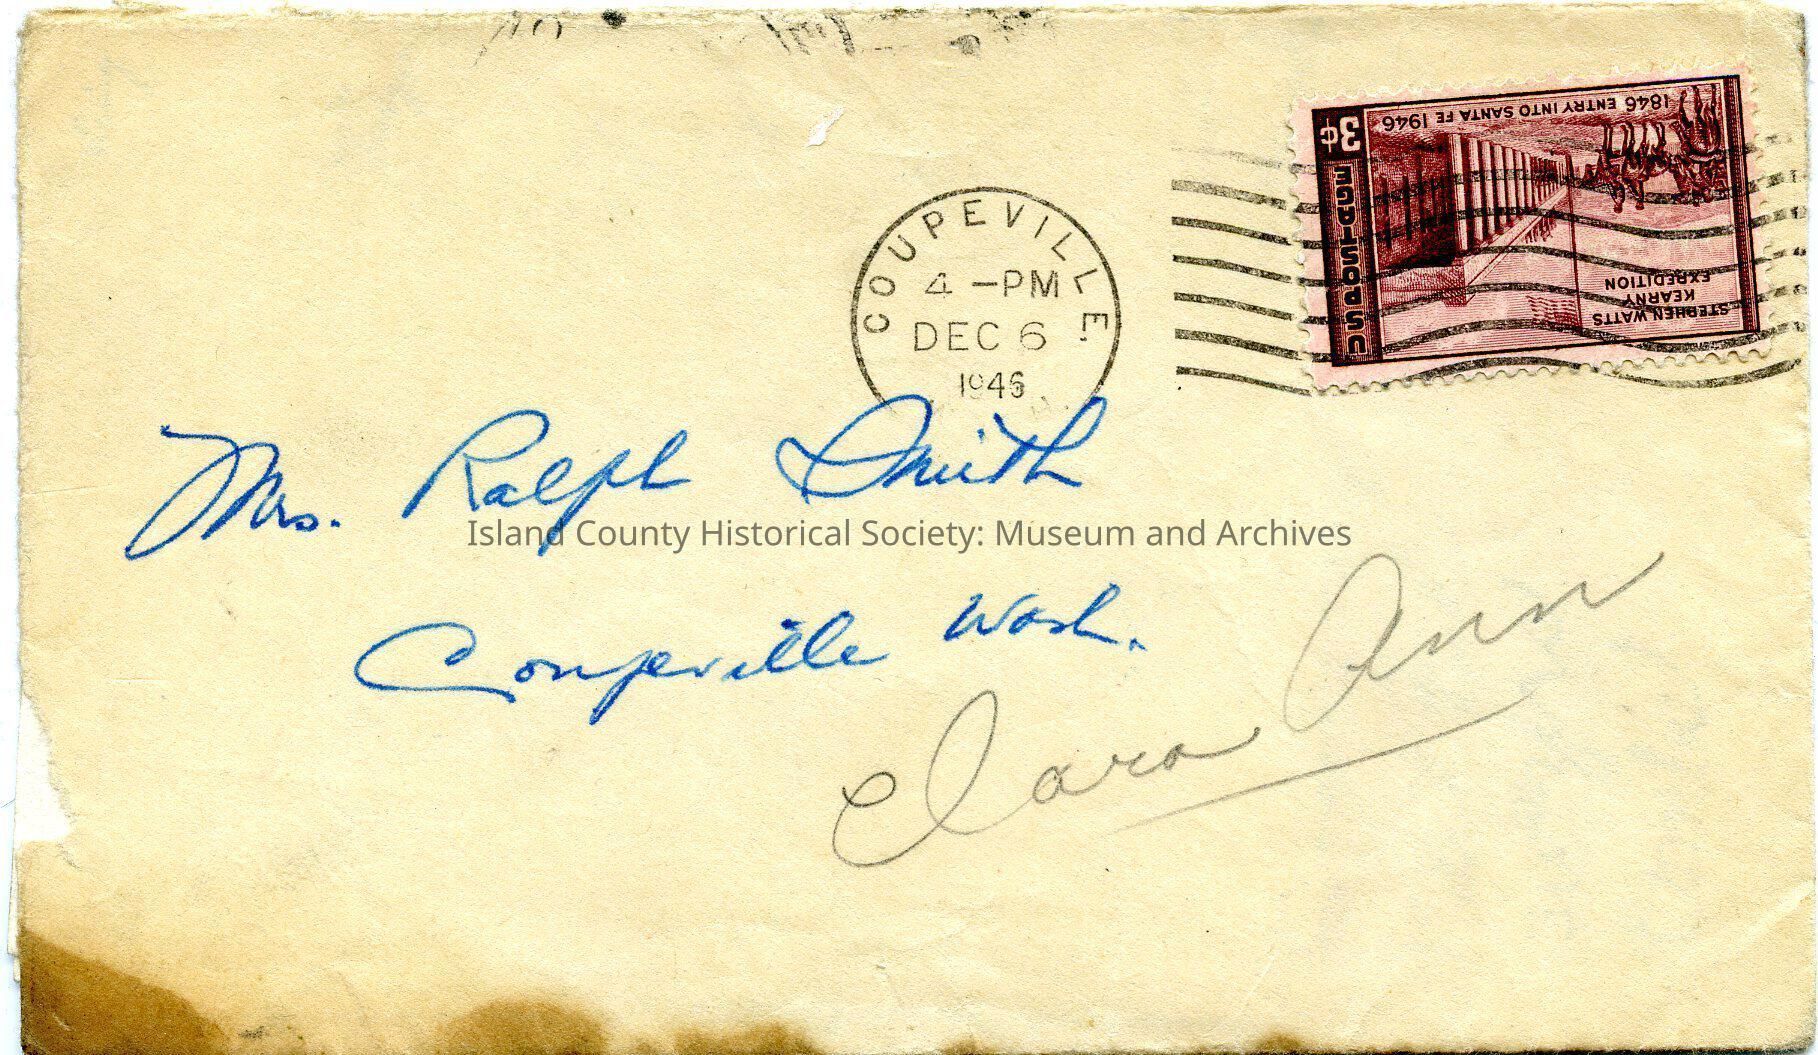 COUPEVILLE.
4 -PM
DEC 6
1946
1846 ENTRY INTO SANTA FE 1946
3¢
U S POSTAGE
STEPHEN WATTS
KEARNY
EXPEDITION
Mrs. Ralph Smith
Island County Historical Society: Museum and Archives
Coupeville Wash.
Clara Ann